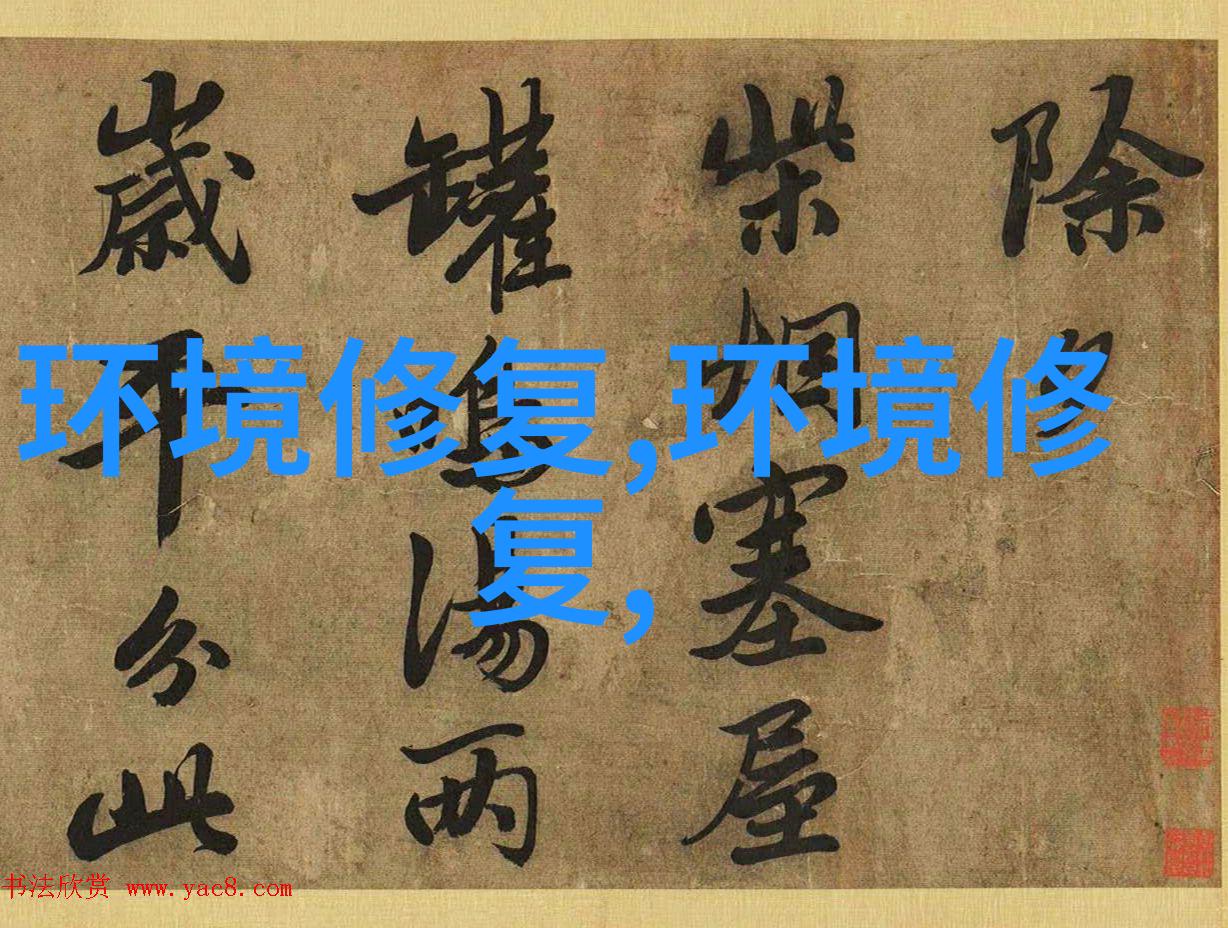 除夕
柴烟塞屋
罐鳴湯两
歲平分此
环境修复,环境修
复,
书法欣赏 www.yac8.com